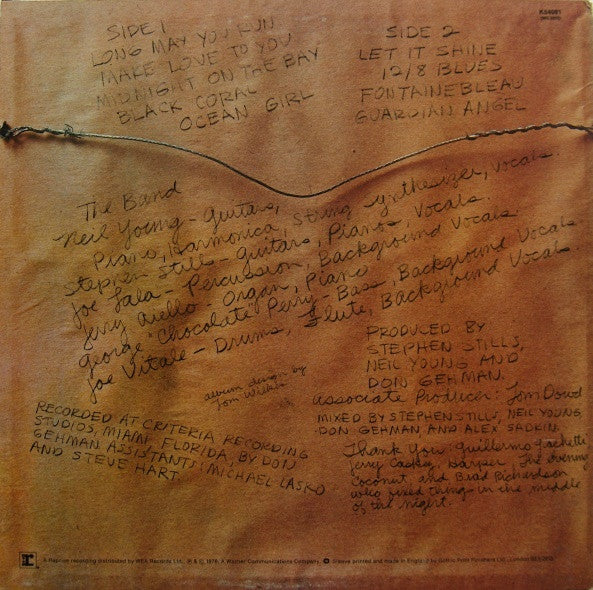 K54081
SIDE 1
LONG MAY YOU RUN
MAKE LOVE TO YOU
MIDNIGHT ON THE BAY
BLACK CORAL
OCEAN GIRL
SIDE 2
LET IT SHINE
12/8 BLUES
FONTAINEBLEAU
GUARDIAN ANGEL
The Band
Neil Young - Guitars,
Piano, Harmonica, String Synthesizer, Vocals.
Stephen Stills - Guitars, Piano, Vocals.
Joe Lala - Percussion, Background Vocals
Jerry Aiello - Organ, Piano
George "Chocolate" Perry - Bass, Background Vocals
Joe Vitale - Drums, Flute, Background Vocals.
album design by
Tom Wilkes
RECORDED AT CRITERIA RECORDING
STUDIOS, MIAMI FLORIDA, BY DON
GEHMAN ASSISTANTS: MICHAEL LASKO
AND STEVE HART.
PRODUCED BY
STEPHEN STILLS,
NEIL YOUNG AND
DON GEHMAN.
Associate Producer: Tom Dowd
MIXED BY STEPHEN STILLS, NEIL YOUNG,
DON GEHMAN AND ALEX SADKIN.
Thank You: Guillermo
Jerry Harper, The evening
Coconut, and Brad Richardson
who fixed things in the middle
of the night.
r
A Reprise recording distributed by WEA Records Ltd. ℗ & © 1976, A Warner Communications Company. Sleeve printed and made in England by Gothic Print Finishers Ltd., London